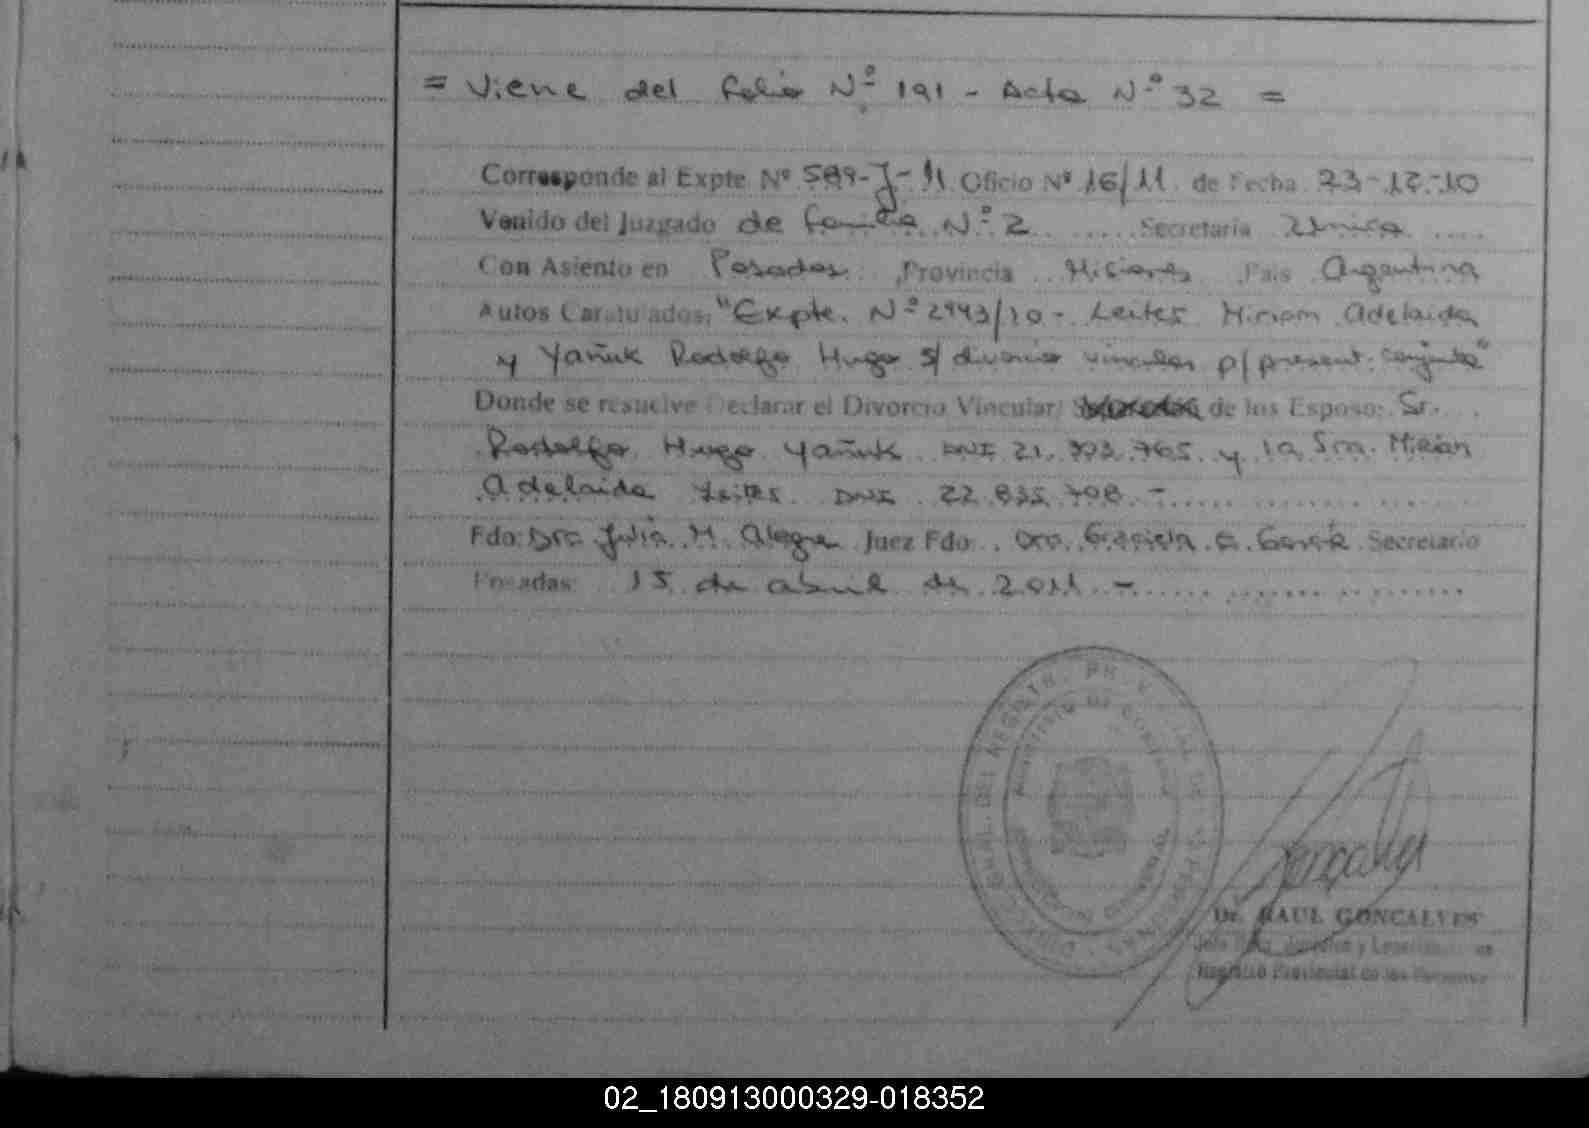 = Viene del folio Nº 191 - Acta Nº 32 =
Corresponde al Expte Nº 589-J-11 Oficio Nº 16/11 de Fecha 23-12-10
Venido del Juzgado de Familia Nº 2 Secretaria Unica
Con Asiento en Posadas Provincia Misiones País Argentina
Autos Caratulados: "Expte. Nº 2943/10 - Leites Miriam Adelaida
y Yañuk Rodolfo Hugo s/ divorcio vincular p/ present. conjunta"
Donde se resuelve Declarar el Divorcio Vincular/ de los Esposo: Sr.
Rodolfo Hugo Yañuk DNI 21.303.765 y la Sra. Mirian
Adelaida Leites DNI 22.835.708 -
Fdo: Dra Julia M. Alegre Juez Fdo: Dra. Graciela Secretario
Posadas: 15 de abril de 2011 -
Dr. RAUL GONCALVES
Registro Provincial de las Personas
02_180913000329-018352